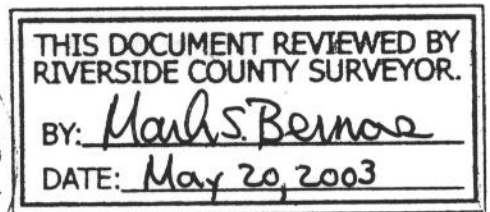 THIS DOCUMENT REVIEWED BY
RIVERSIDE COUNTY SURVEYOR.
BY: Mark S.
DATE: May 20, 2003